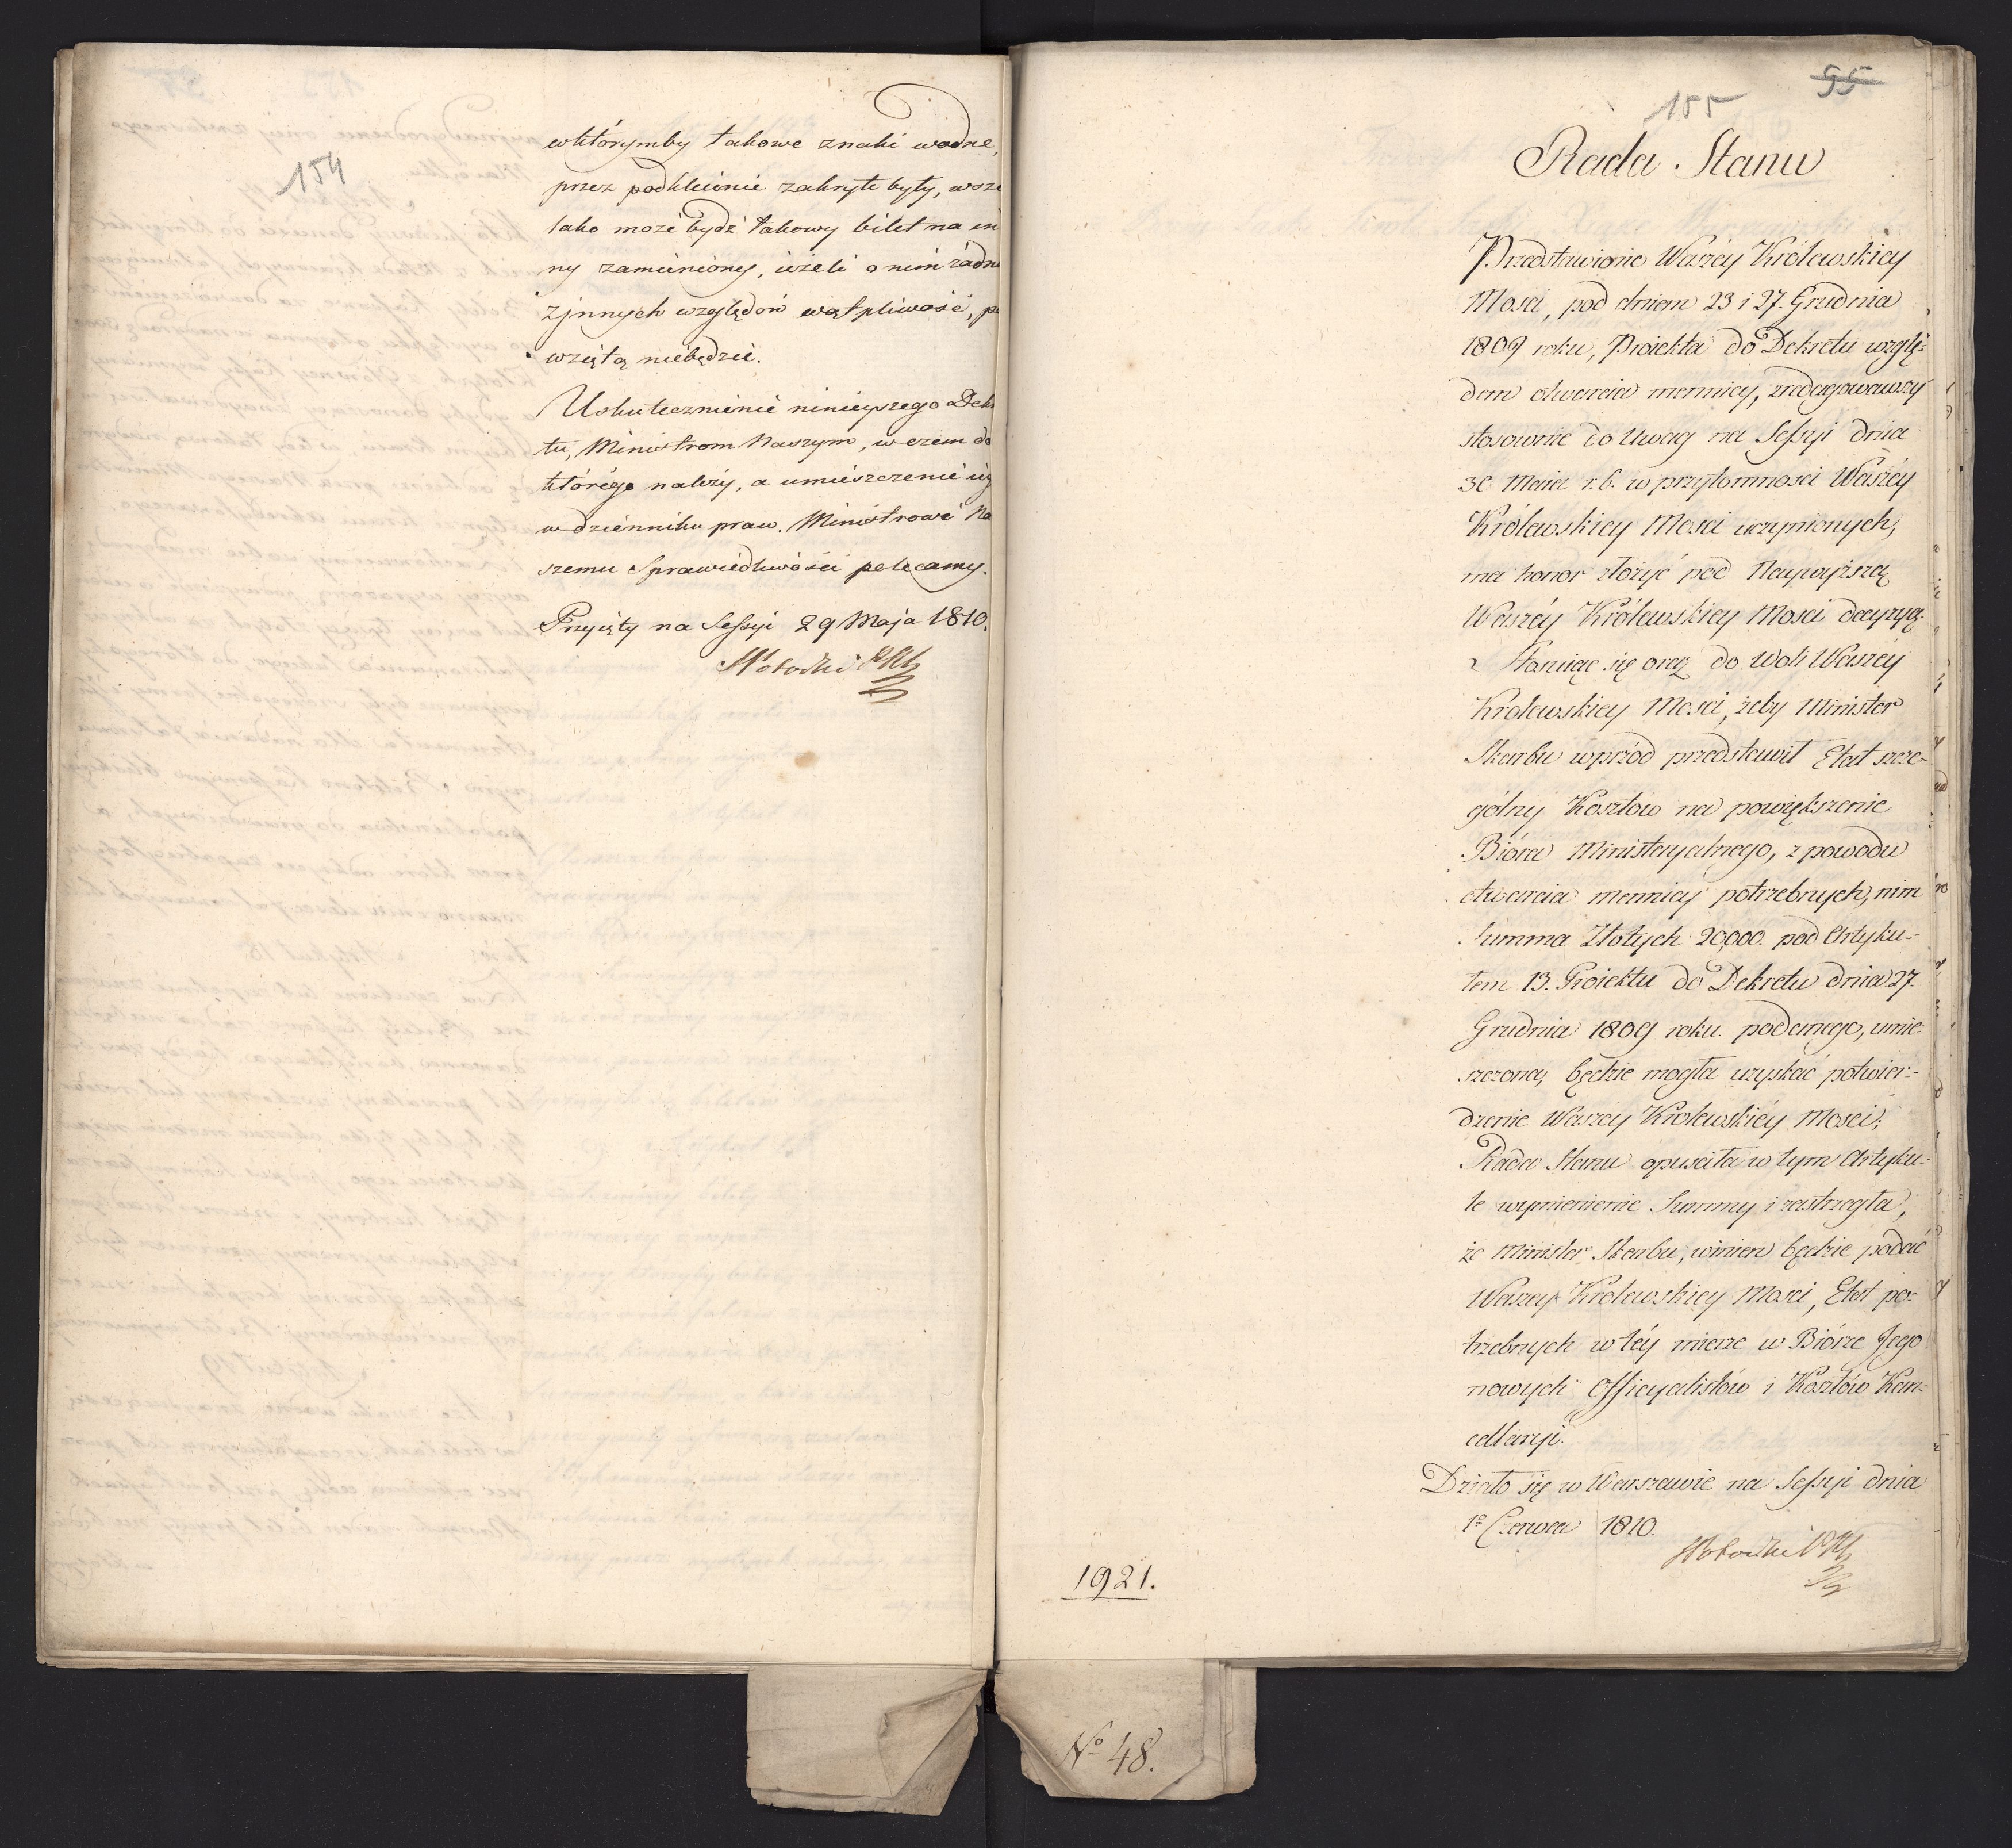 154
w którymby takowe znaki wodne,
przez podkleienie zakryte były, wsze
lako może bydź takowy bilet na in
ny zamieniony, ieżeli o nim żadn
z jnnych względów wątpliwość, po
wziętą niebędzie.
Uskutecznienie ninieyszego Dek
tu, Ministrom Naszym, w czem do
którégo należy, a umieszczenie iég
w dzienniku praw. Ministrowi Na
szemu Sprawiedliwości polecamy.
Przyięty na Sessyi 29 Maja 1810.
55
155
Rada Stanu
Przedstawione Waszéy Królewskiey
Mości, pod dniem 23 i 27. Grudnia
1809 roku, Proiekta do Dekretu wzglę-
dem otwarcia mennicy, zredagowawszy
stosownie do Uwag na Sessyi dnia
30 Maia r. b. w przytomności Waszéy
Królewskiey Mości uczynionych,
ma honor złożyć pod Naywyższą
Waszéy Królewskiey Mości decyzyą.
Stosuiąc się oraz do Woli Waszey
Królewskiey Mości, żeby Minister
Skarbu wprzód przedstawił Etat szcze-
gólny Kosztów na powiększenie
Bióra Ministeryalnego, z powodu
otwarcia mennicy potrzebnych, nim
Summa Złotych 20,000. pod Artyku-
łem 13. Proiektu do Dekretu dnia 27.
Grudnia 1809 roku. podanego, umie-
szczona, będzie mogła uzyskać potwier-
dzenie Waszey Królewskiéy Mości;
Rada Stanu opuściła w tym Artyku-
le wymienienie Summy i zastrzegła,
że Minister Skarbu, winien będzie podać
Waszey Królewskiey Mości, Etat po-
trzebnych w téy mierze w Biórze Jego
nowych Officyalistów i Kosztów Kan-
cellaryi.
Działo się w Warszawie na Sessyi dnia
1º Czerwca 1810.
1921.
Nº 48.